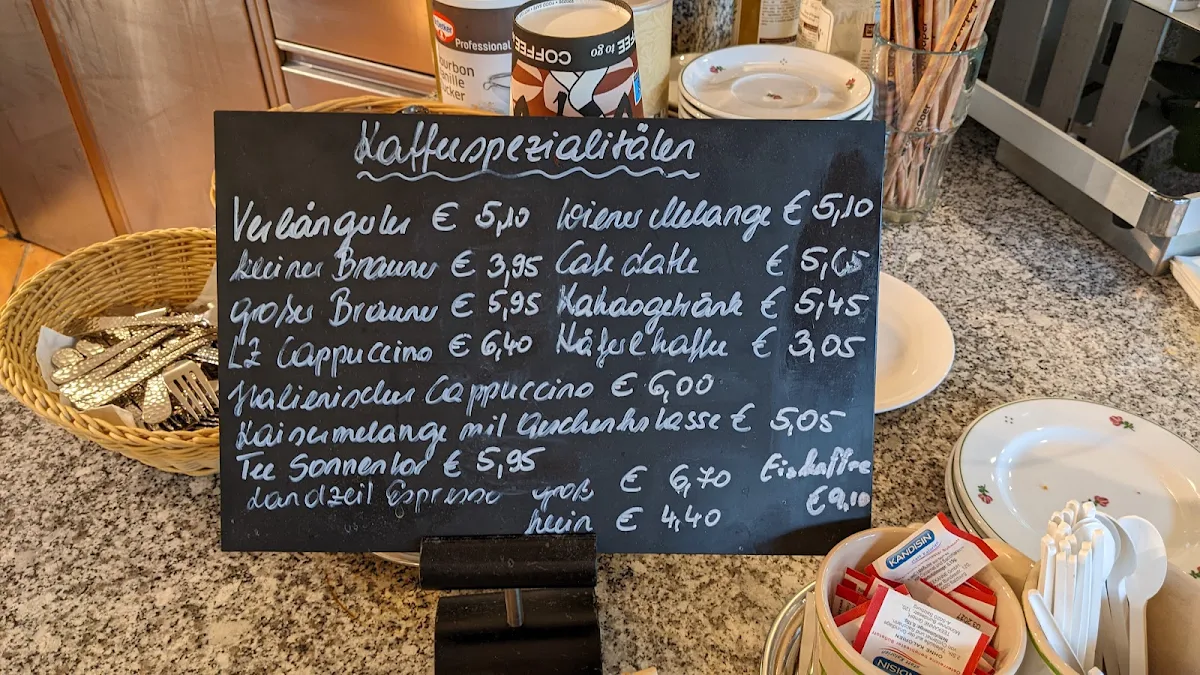 Oetker
Professional
Bourbon
Vanille
Zucker
COFFEE to go
Kaffeespezialitäten
Verlängerter € 5,10 Wiener Melange € 5,10
kleiner Brauner € 3,95 Cafe latte € 5,65
großer Brauner € 5,95 Kakaogetränk € 5,45
LZ Cappuccino € 6,40 Häferlkaffee € 3,05
Italienischer Cappuccino € 6,00
Kaisermelange mit Geschenkstasse € 5,05
Tee Sonnentor € 5,95
Landzeit Espresso groß € 6,70 Eiskaffee
klein € 4,40 € 9,10
KANDISIN
KANDISIN